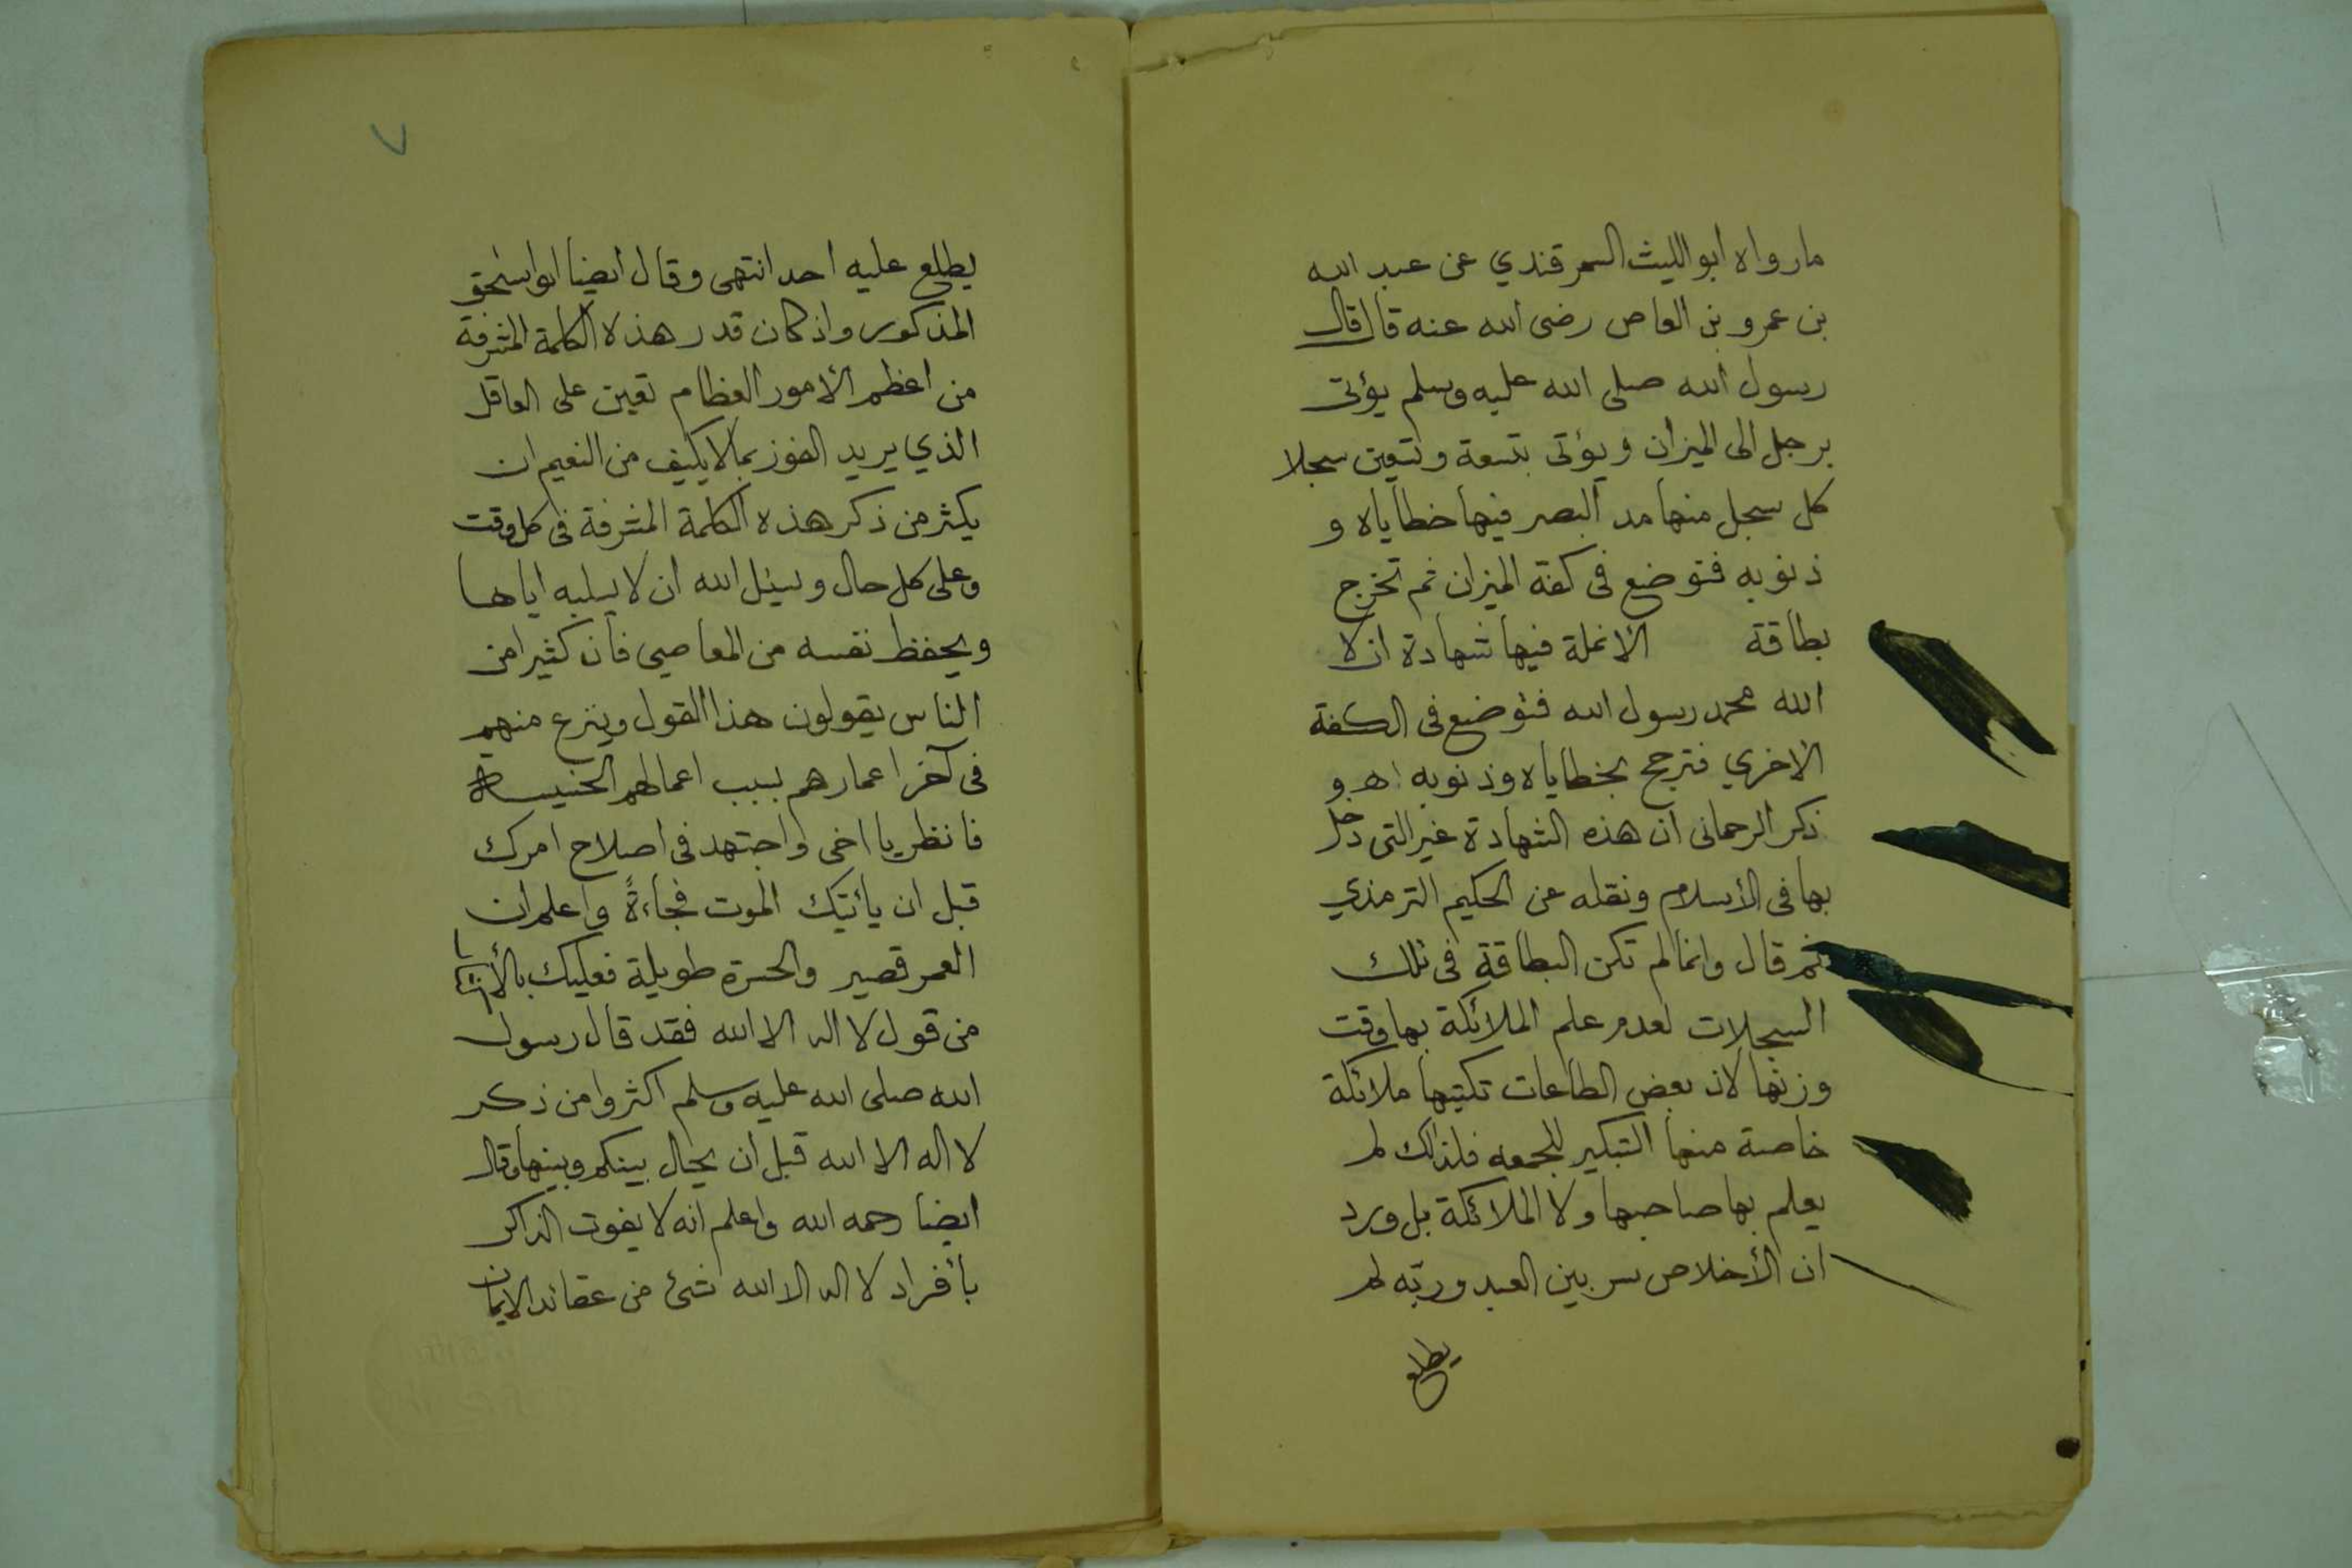 مارواه أبو الليث السمرقندي عن عبد الله
بن عمرو بن العاص رضى الله عنه قال قال
رسول الله صلى الله عليه وسلم يؤتى
برجل الى الميزان ويؤتى بتسعة وتسعين سجلا
كل سجل منها مد البصر فيها خطاياه و
ذنوبه فتوضع فى كفة الميزان ثم تخرج
بطاقة الانملة فيها شهادة ان لا
الله محمد رسول الله فتوضع فى الكفة
الاخري فترجح بخطاياه وذنوبه اهـ و
ذكر الرحمانى ان هذه الشهادة غير التى دخل
بها فى الأسلام ونقله عن الحكيم الترمذي
ثم قال وانما لم تكن البطاقة فى تلك
السجلات لعدم علم الملائكة بها وقت
وزنها لان بعض الطاعات تكتبها ملائكة
خاصة منها التبكير للجمعه فلذالك لم
يعلم بها صاحبها ولا الملائكة بل ورد
ان الأخلاص سر بين العبد وربه لم
يطلع
٧
يطلع عليه احد انتهى وقال ايضا ابو اسحق
المذكور واذ كان قدر هذه الكلمة المشرفة
من اعظم الامور العظام تعين على العاقل
الذي يريد الفوز بما لا يكيف من النعيم ان
يكثر من ذكر هذه الكلمة المشرفة فى كل وقت
وعلى كل حال ويسئل الله ان لا يسلبه اياها
ويحفظ نفسه من المعاصي فأن كثيرا من
الناس يقولون هذا القول وينزع منهم
فى آخر اعمارهم بسبب اعمالهم الخبيسة
فانظر يا اخى واجتهد فى اصلاح امرك
قبل ان يأتيك الموت فجاءةً واعلم ان
العمر قصير والحسرة طويلة فعليك بالأكثار
من قول لا اله الا الله فقد قال رسول
الله صلى الله عليه وسلم اكثروا من ذكر
لا اله الا الله قبل ان يحال بينكم وبينها وقال
ايضا رحمه الله واعلم انه لا يفوت الذاكر
بأفراد لا اله الا الله شئ من عقائد الايمان